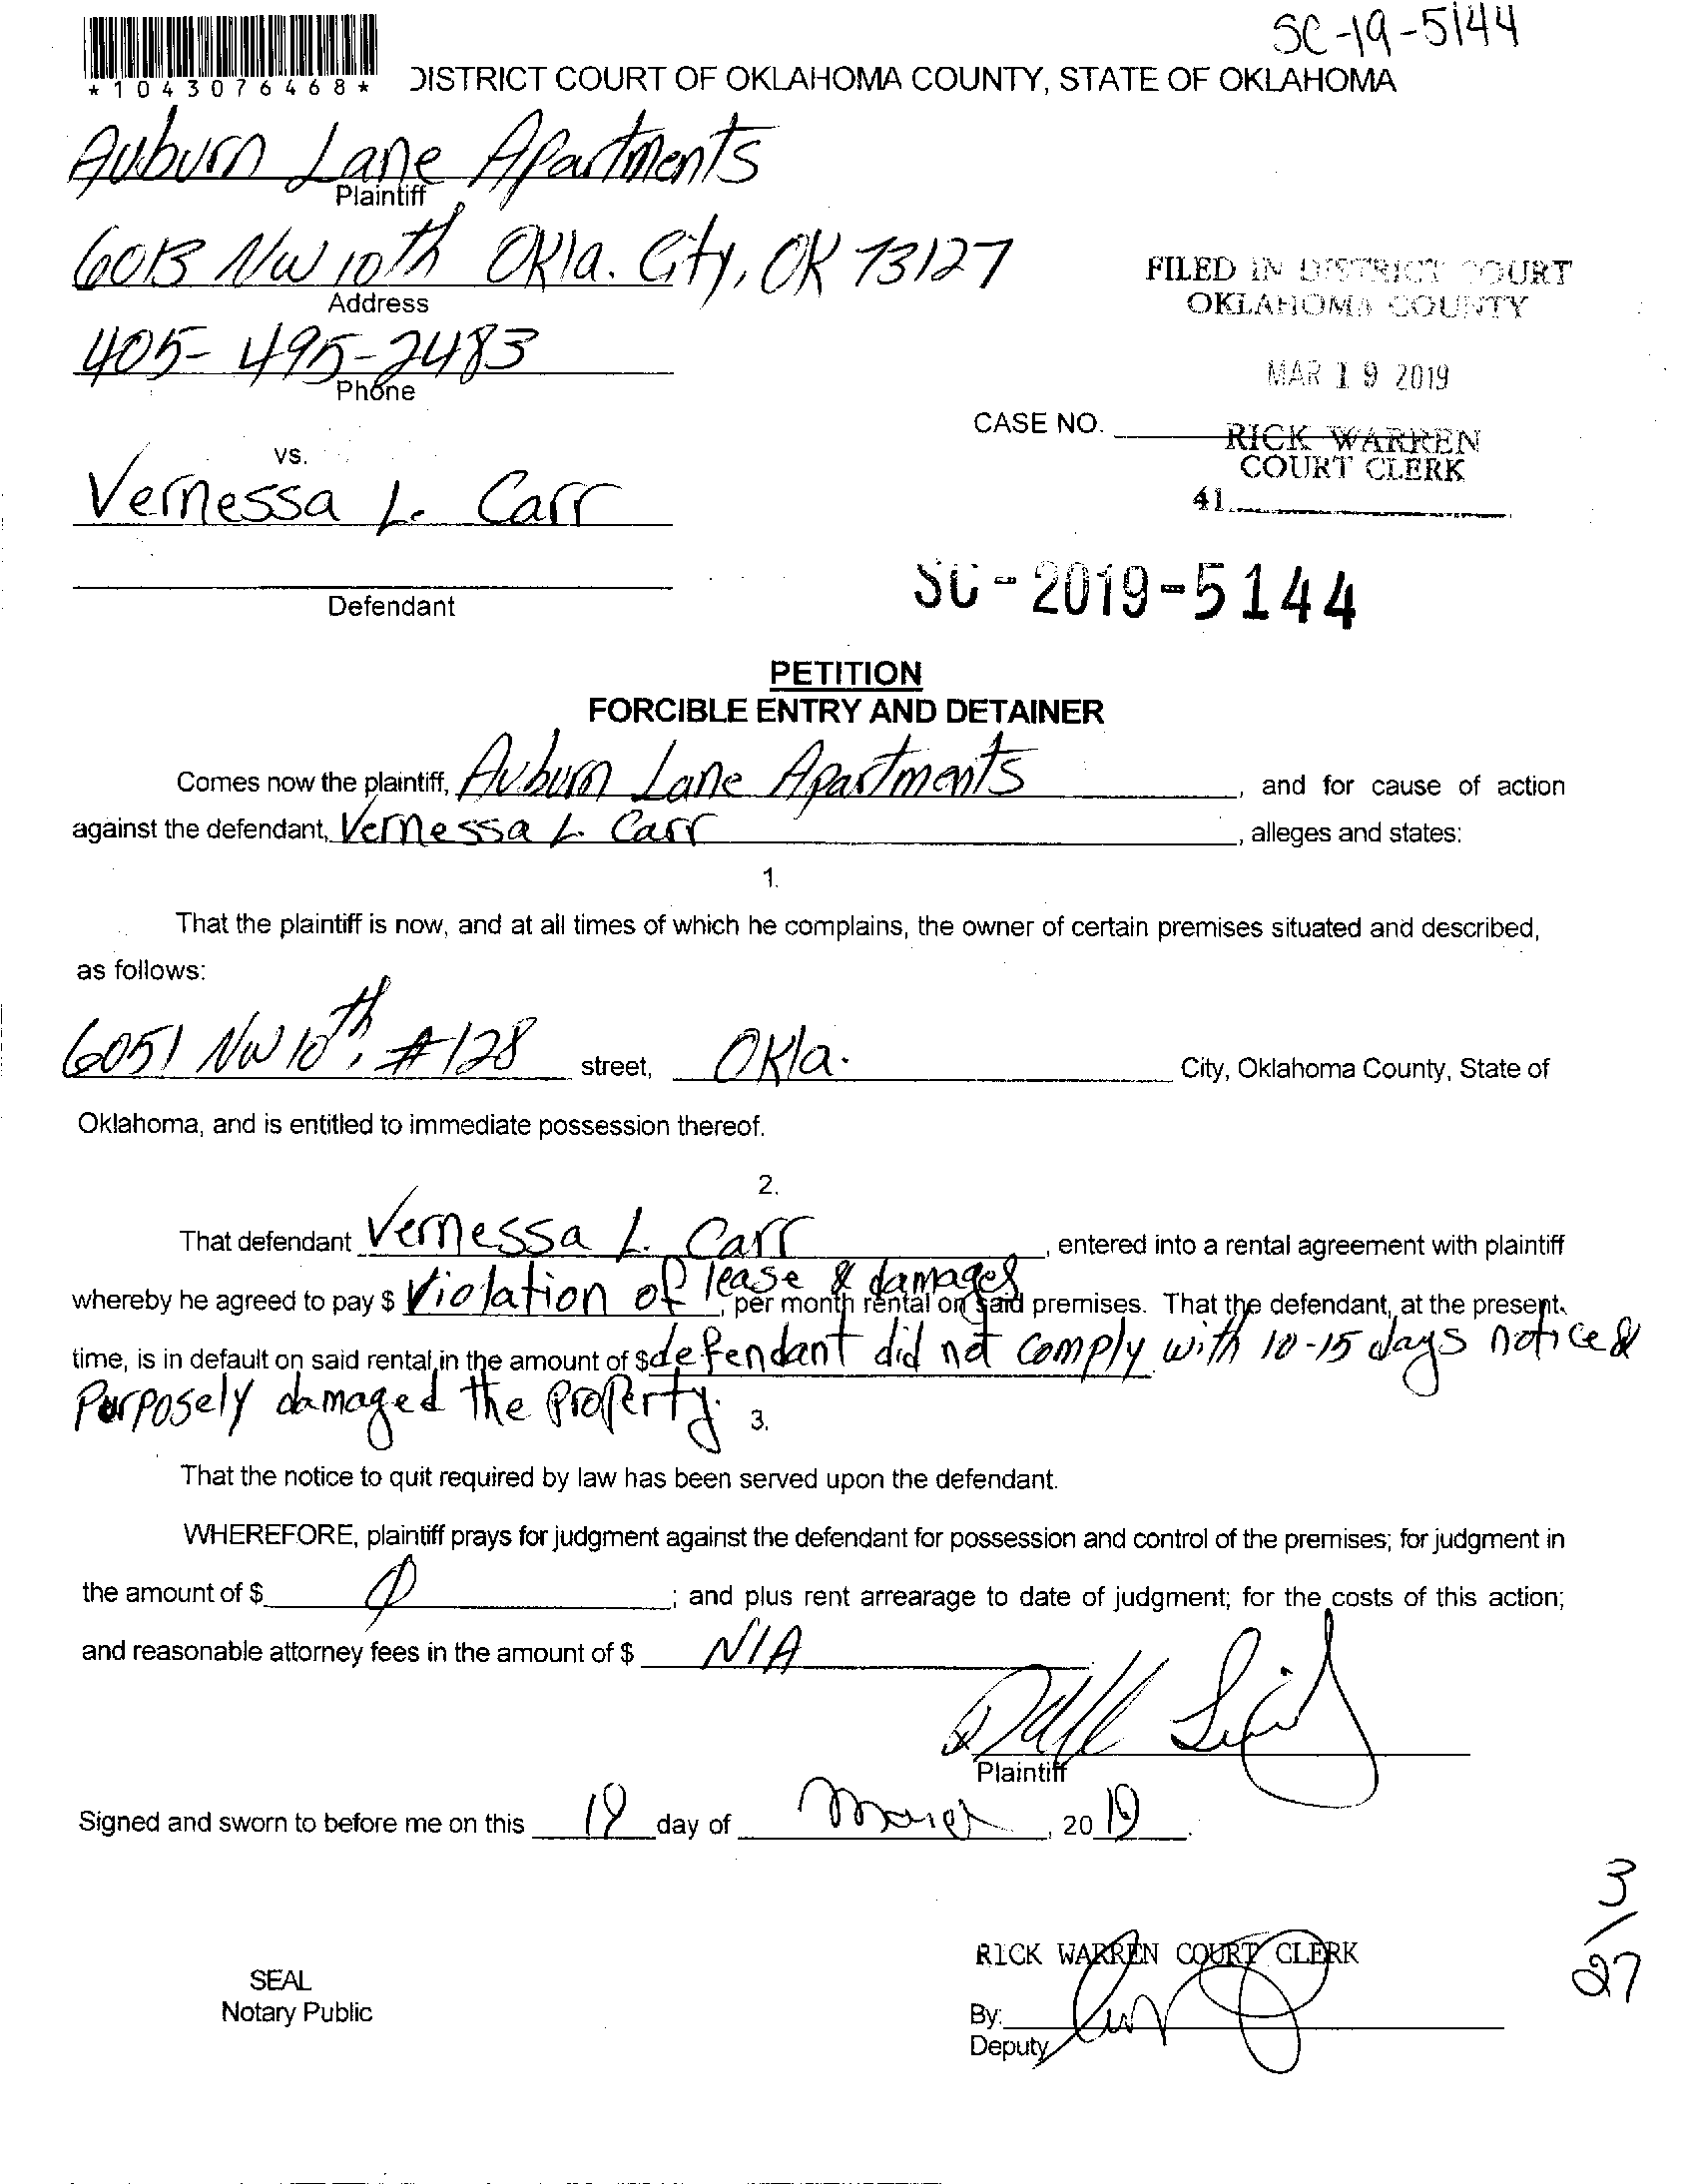 SC-19-5144
*1043076468*
DISTRICT COURT OF OKLAHOMA COUNTY, STATE OF OKLAHOMA
Auburn Lane Apartments
Plaintiff
6013 NW 10th Okla. City, OK 73127
Address
405-495-2483
Phone
FILED IN DISTRICT COURT
OKLAHOMA COUNTY
MAR 19 2019
CASE NO.
RICK WARREN
COURT CLERK
41
vs.
Vernessa L. Carr
Defendant
SC-2019-5144
PETITION
FORCIBLE ENTRY AND DETAINER
Comes now the plaintiff, Auburn Lane Apartments, and for cause of action
against the defendant, Vernessa L. Carr, alleges and states:
1.
That the plaintiff is now, and at all times of which he complains, the owner of certain premises situated and described,
as follows:
6051 NW 10th, #128 street, Okla. City, Oklahoma County, State of
Oklahoma, and is entitled to immediate possession thereof.
2.
That defendant Vernessa L. Carr, entered into a rental agreement with plaintiff
whereby he agreed to pay $ Violation of lease & damages, per month rental on said premises. That the defendant, at the present
time, is in default on said rental in the amount of $ defendant did not comply with 10-15 days notice &
Purposely damaged the Property.
3.
That the notice to quit required by law has been served upon the defendant.
WHEREFORE, plaintiff prays for judgment against the defendant for possession and control of the premises; for judgment in
the amount of $ 0; and plus rent arrearage to date of judgment; for the costs of this action;
and reasonable attorney fees in the amount of $ N/A
x
Plaintiff
Signed and sworn to before me on this 19 day of March, 2019.
3/27
RICK WARREN COURT CLERK
SEAL
Notary Public
By:
Deputy